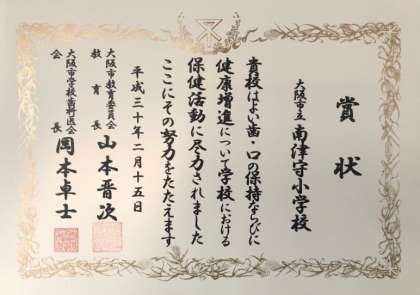 賞状
大阪市立 南津守小学校
貴校はよい歯・口の保持ならびに
健康増進について学校における
保健活動に尽力されました
ここにその努力をたたえます
平成三十年二月十五日
大阪市教育委員会
教育長 山本晋次
大阪市学校歯科医会
会長 岡本卓士